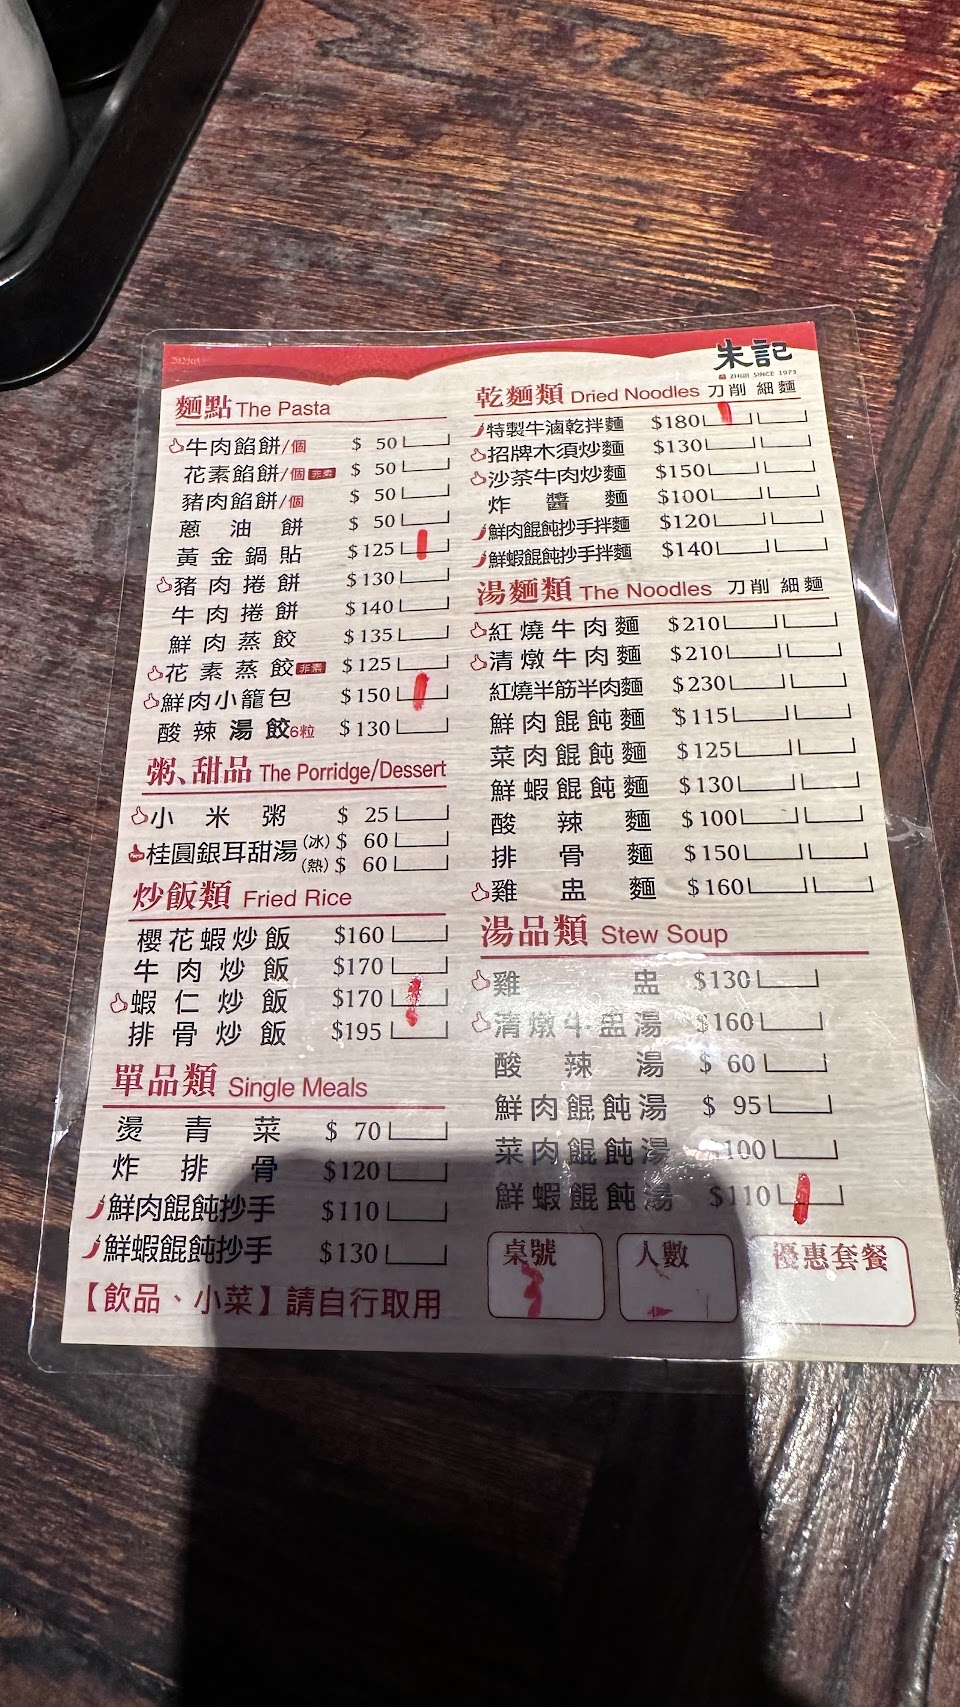 朱記
ZHUJI SINCE 1973
麵點 The Pasta
牛肉餡餅/個 $ 50
花素餡餅/個 非素 $ 50
豬肉餡餅/個 $ 50
蔥油餅 $ 50
黃金鍋貼 $125
豬肉捲餅 $130
牛肉捲餅 $140
鮮肉蒸餃 $135
花素蒸餃 非素 $125
鮮肉小籠包 $150
酸辣湯餃6粒 $130
粥、甜品 The Porridge/Dessert
小米粥 $ 25
桂圓銀耳甜湯 (冰) $ 60
(熱) $ 60
炒飯類 Fried Rice
櫻花蝦炒飯 $160
牛肉炒飯 $170
蝦仁炒飯 $170
排骨炒飯 $195
單品類 Single Meals
燙青菜 $ 70
炸排骨 $120
鮮肉餛飩抄手 $110
鮮蝦餛飩抄手 $130
【飲品、小菜】請自行取用
乾麵類 Dried Noodles 刀削 細麵
特製牛滷乾拌麵 $180
招牌木須炒麵 $130
沙茶牛肉炒麵 $150
炸醬麵 $100
鮮肉餛飩抄手拌麵 $120
鮮蝦餛飩抄手拌麵 $140
湯麵類 The Noodles 刀削 細麵
紅燒牛肉麵 $210
清燉牛肉麵 $210
紅燒半筋半肉麵 $230
鮮肉餛飩麵 $115
菜肉餛飩麵 $125
鮮蝦餛飩麵 $130
酸辣麵 $100
排骨麵 $150
雞盅麵 $160
湯品類 Stew Soup
雞盅 $130
清燉牛盅湯 $160
酸辣湯 $ 60
鮮肉餛飩湯 $ 95
菜肉餛飩湯 $100
鮮蝦餛飩湯 $110
桌號 人數 優惠套餐
3